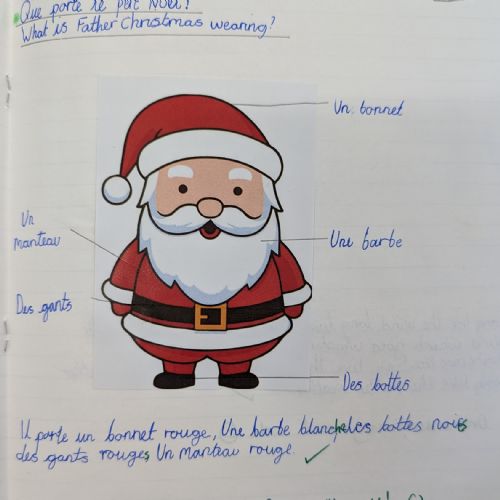 Que porte le père Noël?
What is Father Christmas wearing?
Un bonnet
Un
manteau
Une barbe
Des gants
Des bottes
Il porte un bonnet rouge, Une barbe blanche des bottes noires
des gants rouges, Un manteau rouge.